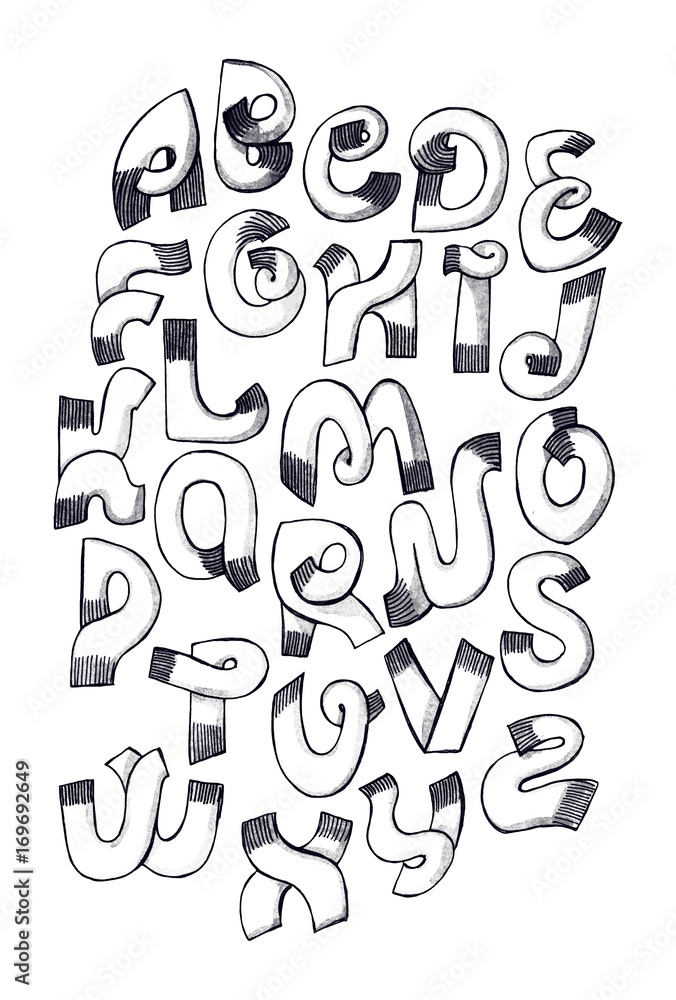 ABCDE
FGHIJ
KLMNO
PQRS
TUV
WXYZ
Adobe Stock | #169692649